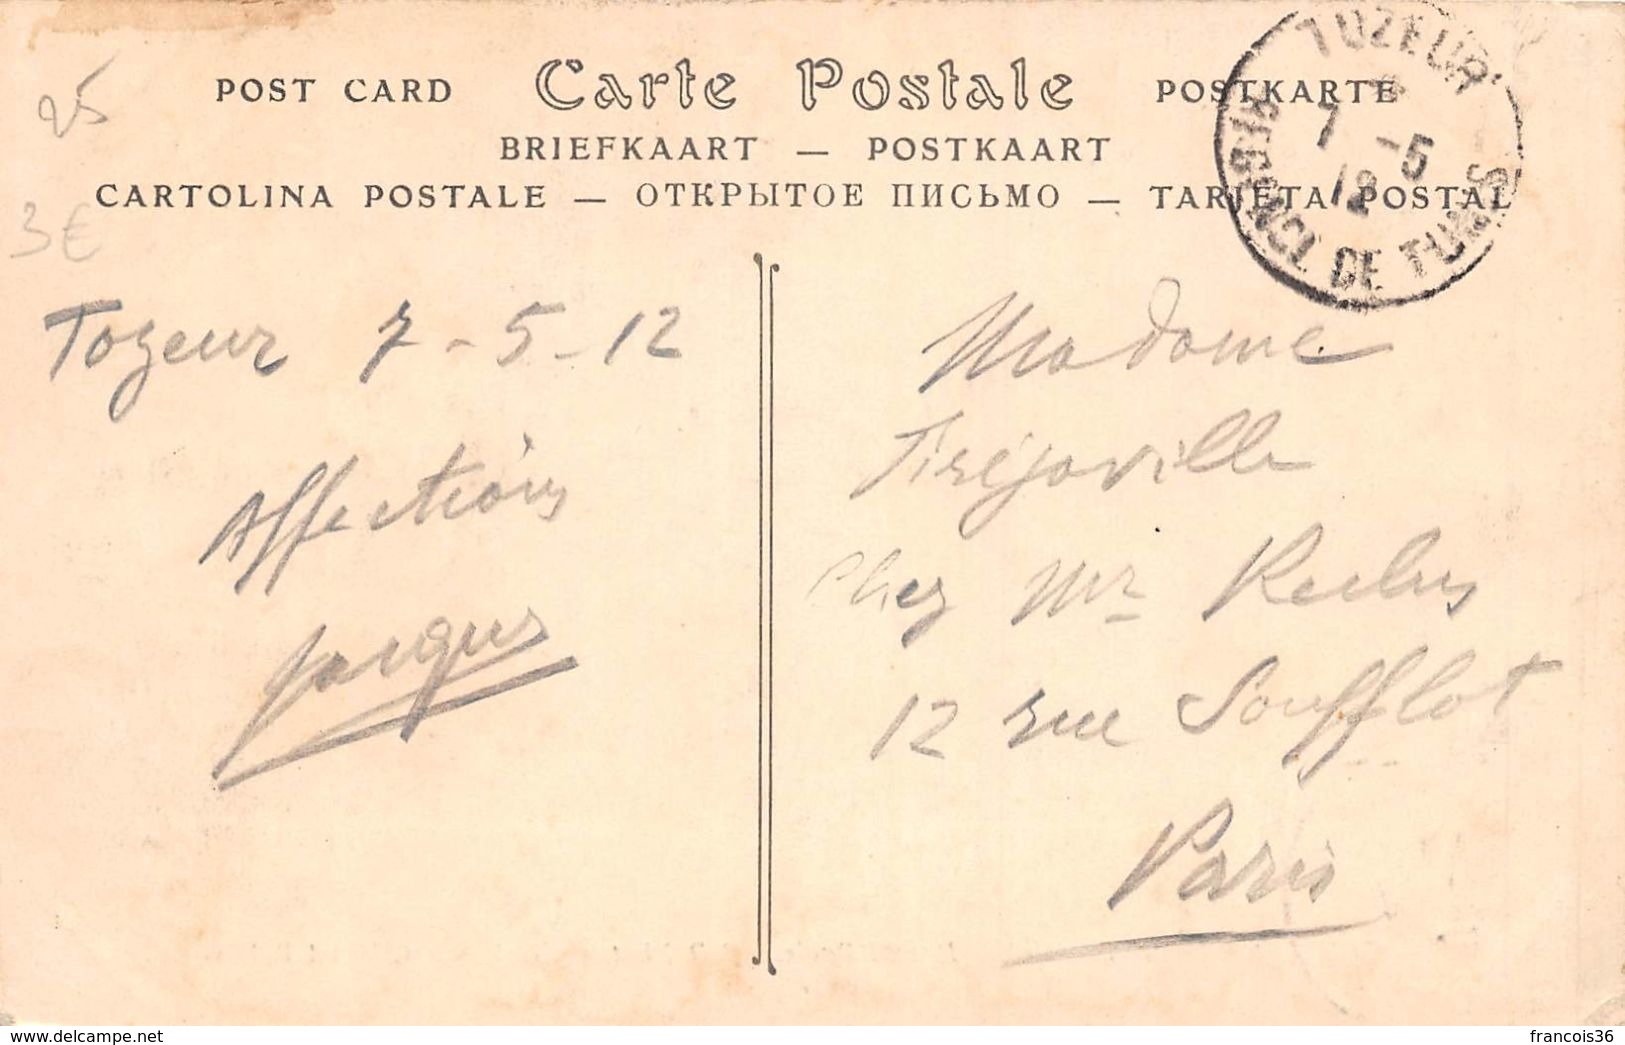 25
POST CARD Carte Postale POSTKARTE
BRIEFKAART — POSTKAART
CARTOLINA POSTALE — ОТКРЫТОЕ ПИСЬМО — TARJETA POSTAL
3€
TOZEUR
7 -5
12
REGENCE DE TUNIS
Tozeur 7-5-12
Affections
Jacques
Madame
Chez Mr Reclus
12 rue Soufflot
Paris
francois36